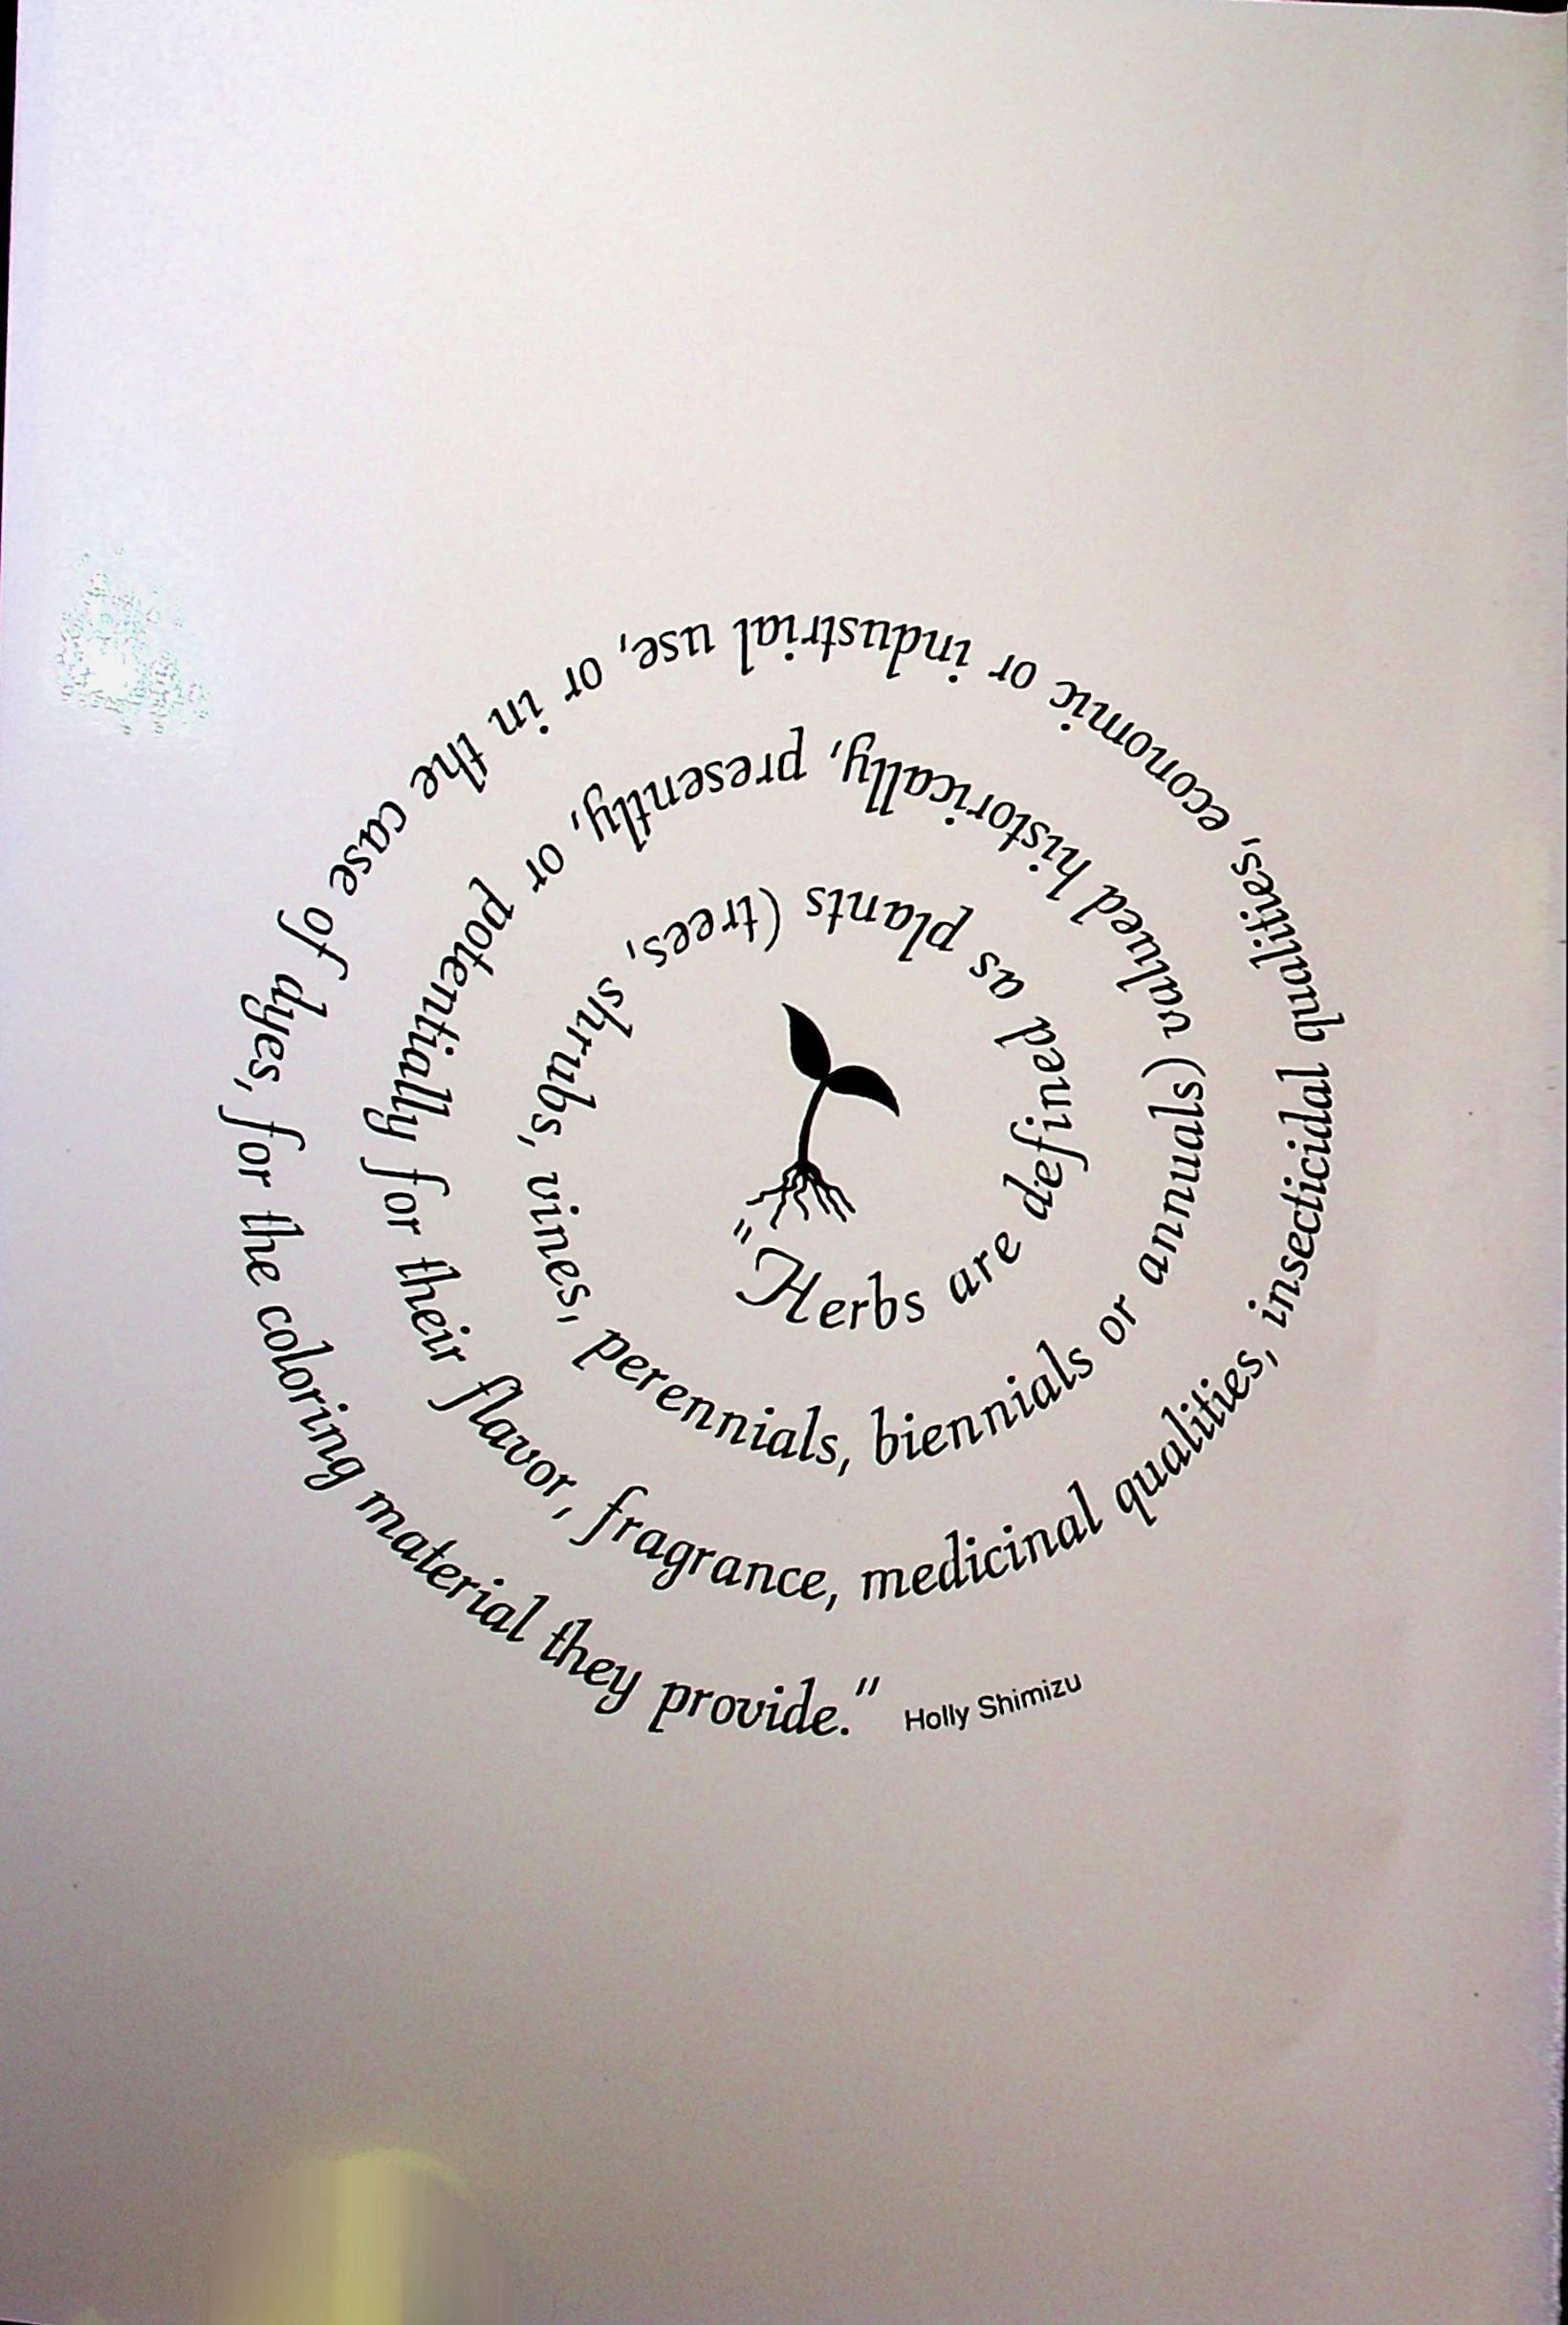 "Herbs are defined as plants (trees, shrubs, vines, perennials, biennials or annuals) valued historically, presently, or potentially for their flavor, fragrance, medicinal qualities, insecticidal qualities, economic or industrial use, or in the case of dyes, for the coloring material they provide."
Holly Shimizu